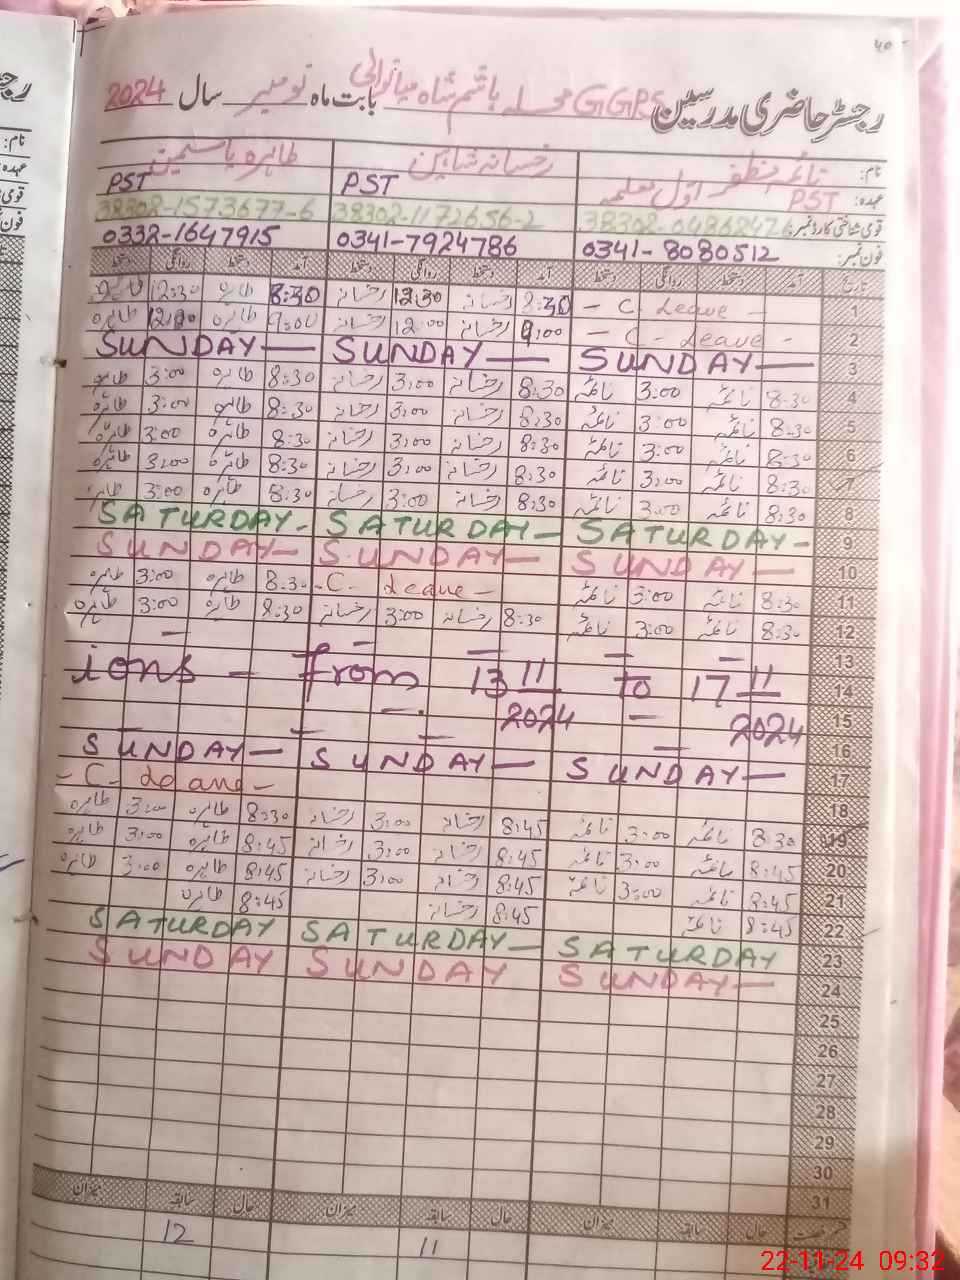 ۶۵
رجسٹر حاضری مدرسین GGPS محلہ ہاشم شاہ میانوالی بابت ماہ نومبر سال 2024
نام: نائمہ مظفر رخسانہ شاہین طاہرہ یاسمین
عہدہ: PST اول معلمہ PST PST
قومی شناختی کارڈ نمبر: 38302-1122656-2 38302-1573677-6
فون نمبر: 0341-8080512 0341-7924786 0332-1647915
تاریخ آمد دستخط روانگی دستخط آمد دستخط روانگی دستخط آمد دستخط روانگی دستخط
- C. Leave - 8:30 رخسانہ 12:30 رخسانہ 8:30 طاہرہ 12:30 طاہرہ
2 - C- Leave - 9:00 رخسانہ 12:00 رخسانہ 9:00 طاہرہ 12:00 طاہرہ
3 SUNDAY — SUNDAY — SUNDAY —
4 8:30 نائمہ 3:00 نائمہ 8:30 رخسانہ 3:00 رخسانہ 8:30 طاہرہ 3:00 طاہرہ
5 8:30 نائمہ 3:00 نائمہ 8:30 رخسانہ 3:00 رخسانہ 8:30 طاہرہ 3:00 طاہرہ
6 8:30 نائمہ 3:00 نائمہ 8:30 رخسانہ 3:00 رخسانہ 8:30 طاہرہ 3:00 طاہرہ
7 8:30 نائمہ 3:00 نائمہ 8:30 رخسانہ 3:00 رخسانہ 8:30 طاہرہ 3:00 طاہرہ
8 8:30 نائمہ 3:00 نائمہ 8:30 رخسانہ 3:00 رخسانہ 8:30 طاہرہ 3:00 طاہرہ
9 SATURDAY - SATURDAY - SATURDAY -
10 SUNDAY — SUNDAY — SUNDAY —
11 8:30 نائمہ 3:00 نائمہ - C. Leave - 8:30 طاہرہ 3:00 طاہرہ
12 8:30 نائمہ 3:00 نائمہ 8:30 رخسانہ 3:00 رخسانہ 8:30 طاہرہ 3:00 طاہرہ
13
14 ions - from 13 11 to 17 11
15 2024 2024
16
17 SUNDAY — SUNDAY — SUNDAY —
18 - C- Leave -
19 8:30 نائمہ 3:00 نائمہ 8:45 رخسانہ 3:00 رخسانہ 8:30 طاہرہ 3:00 طاہرہ
20 8:45 نائمہ 3:00 نائمہ 8:45 رخسانہ 3:00 رخسانہ 8:45 طاہرہ 3:00 طاہرہ
21 8:45 نائمہ 3:00 نائمہ 8:45 رخسانہ 3:00 رخسانہ 8:45 طاہرہ 3:00 طاہرہ
22 8:45 نائمہ 8:45 رخسانہ 8:45 طاہرہ
23 SATURDAY SATURDAY — SATURDAY
24 SUNDAY — SUNDAY SUNDAY
25
26
27
28
29
30
31
رخصت حال سابقہ میزان حال سابقہ میزان حال سابقہ میزان
11 12
22-11-24 09:32
نام:
عہدہ:
قومی
فون